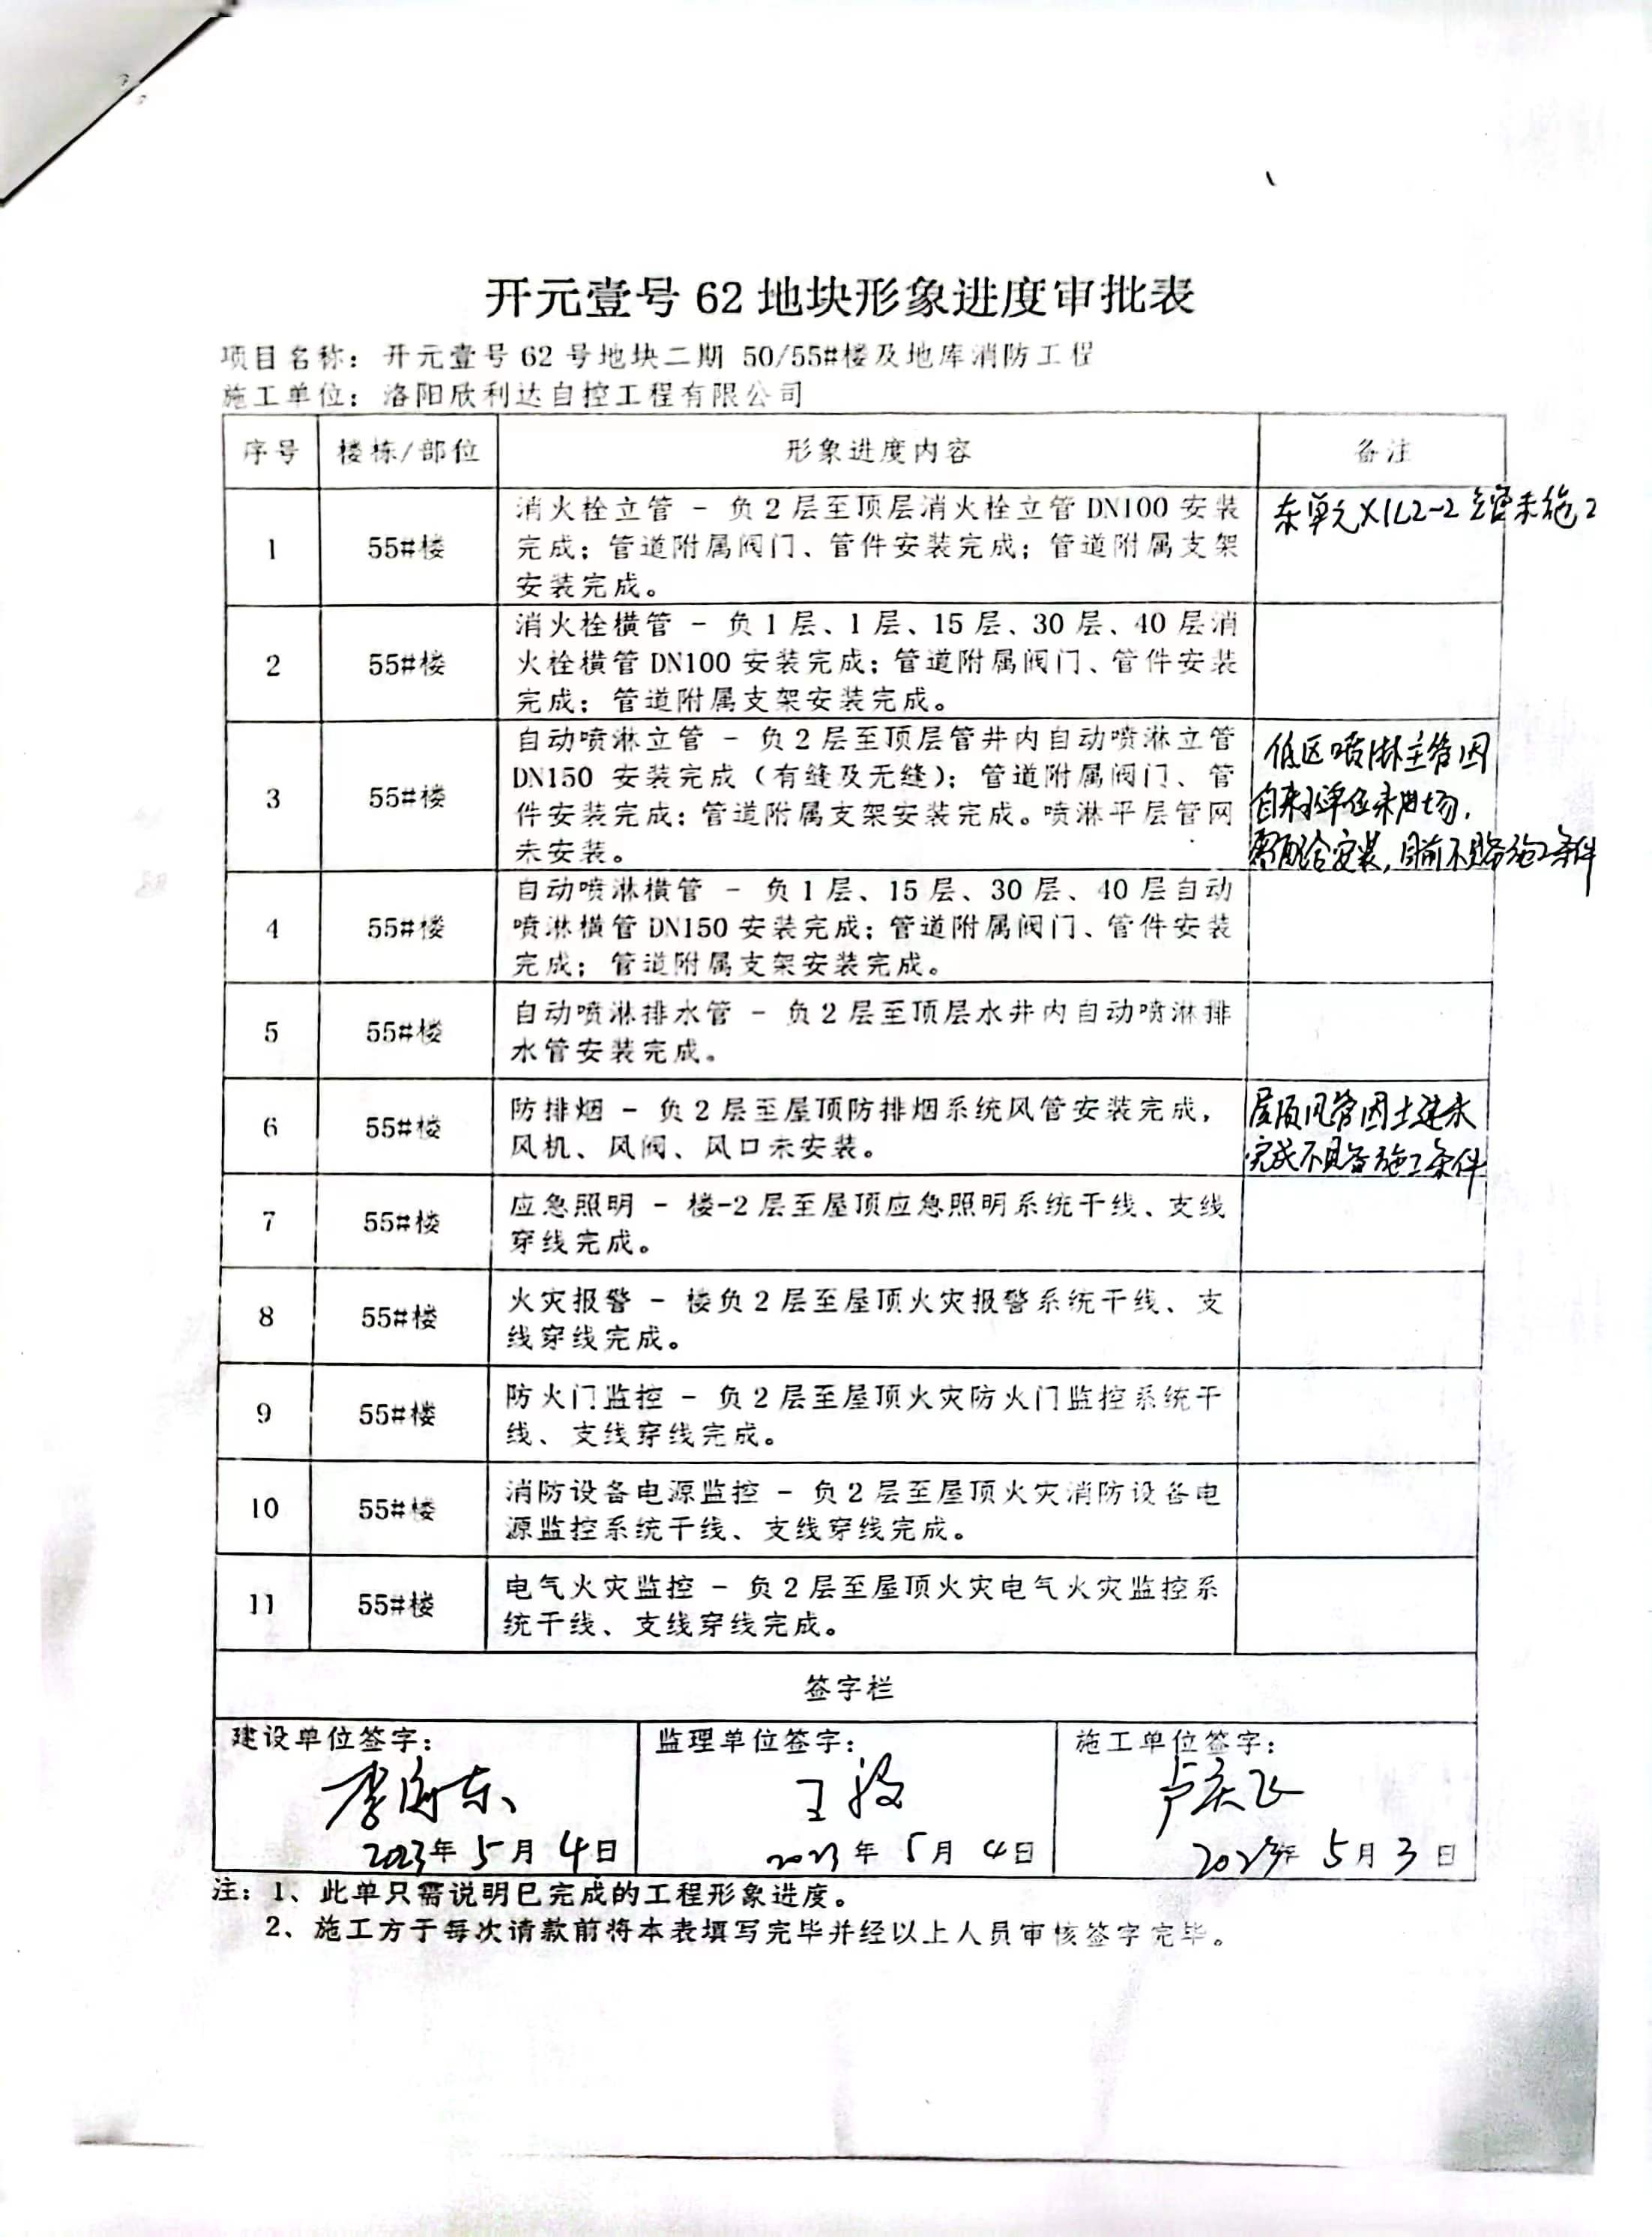 开元壹号 62 地块形象进度审批表
项目名称：开元壹号 62 号地块二期 50/55#楼及地库消防工程
施工单位：洛阳欣利达自控工程有限公司
序号 楼栋/部位 形象进度内容 备注
1 55#楼
消火栓立管 - 负 2 层至顶层消火栓立管 DN100 安装
完成；管道附属阀门、管件安装完成；管道附属支架
安装完成。
东单元X1L2-2立管未施工
2 55#楼
消火栓横管 - 负 1 层、1 层、15 层、30 层、40 层消
火栓横管 DN100 安装完成；管道附属阀门、管件安装
完成；管道附属支架安装完成。
3 55#楼
自动喷淋立管 - 负 2 层至顶层管井内自动喷淋立管
DN150 安装完成（有缝及无缝）；管道附属阀门、管
件安装完成；管道附属支架安装完成。喷淋平层管网
未安装。
低区喷淋主管因
自来水单位未进场，
需配合安装，目前不具备施工条件
4 55#楼
自动喷淋横管 - 负 1 层、15 层、30 层、40 层自动
喷淋横管 DN150 安装完成；管道附属阀门、管件安装
完成；管道附属支架安装完成。
5 55#楼
自动喷淋排水管 - 负 2 层至顶层水井内自动喷淋排
水管安装完成。
6 55#楼
防排烟 - 负 2 层至屋顶防排烟系统风管安装完成，
风机、风阀、风口未安装。
屋顶风管因土建未
完成不具备施工条件
7 55#楼
应急照明 - 楼-2 层至屋顶应急照明系统干线、支线
穿线完成。
8 55#楼
火灾报警 - 楼负 2 层至屋顶火灾报警系统干线、支
线穿线完成。
9 55#楼
防火门监控 - 负 2 层至屋顶火灾防火门监控系统干
线、支线穿线完成。
10 55#楼
消防设备电源监控 - 负 2 层至屋顶火灾消防设备电
源监控系统干线、支线穿线完成。
11 55#楼
电气火灾监控 - 负 2 层至屋顶火灾电气火灾监控系
统干线、支线穿线完成。
签字栏
建设单位签字： 监理单位签字： 施工单位签字：
李海东 王 卢庆飞
2023年 5 月 4 日 2023 年 5 月 4 日 2023年 5 月 3 日
注：1、此单只需说明已完成的工程形象进度。
2、施工方于每次请款前将本表填写完毕并经以上人员审核签字完毕。